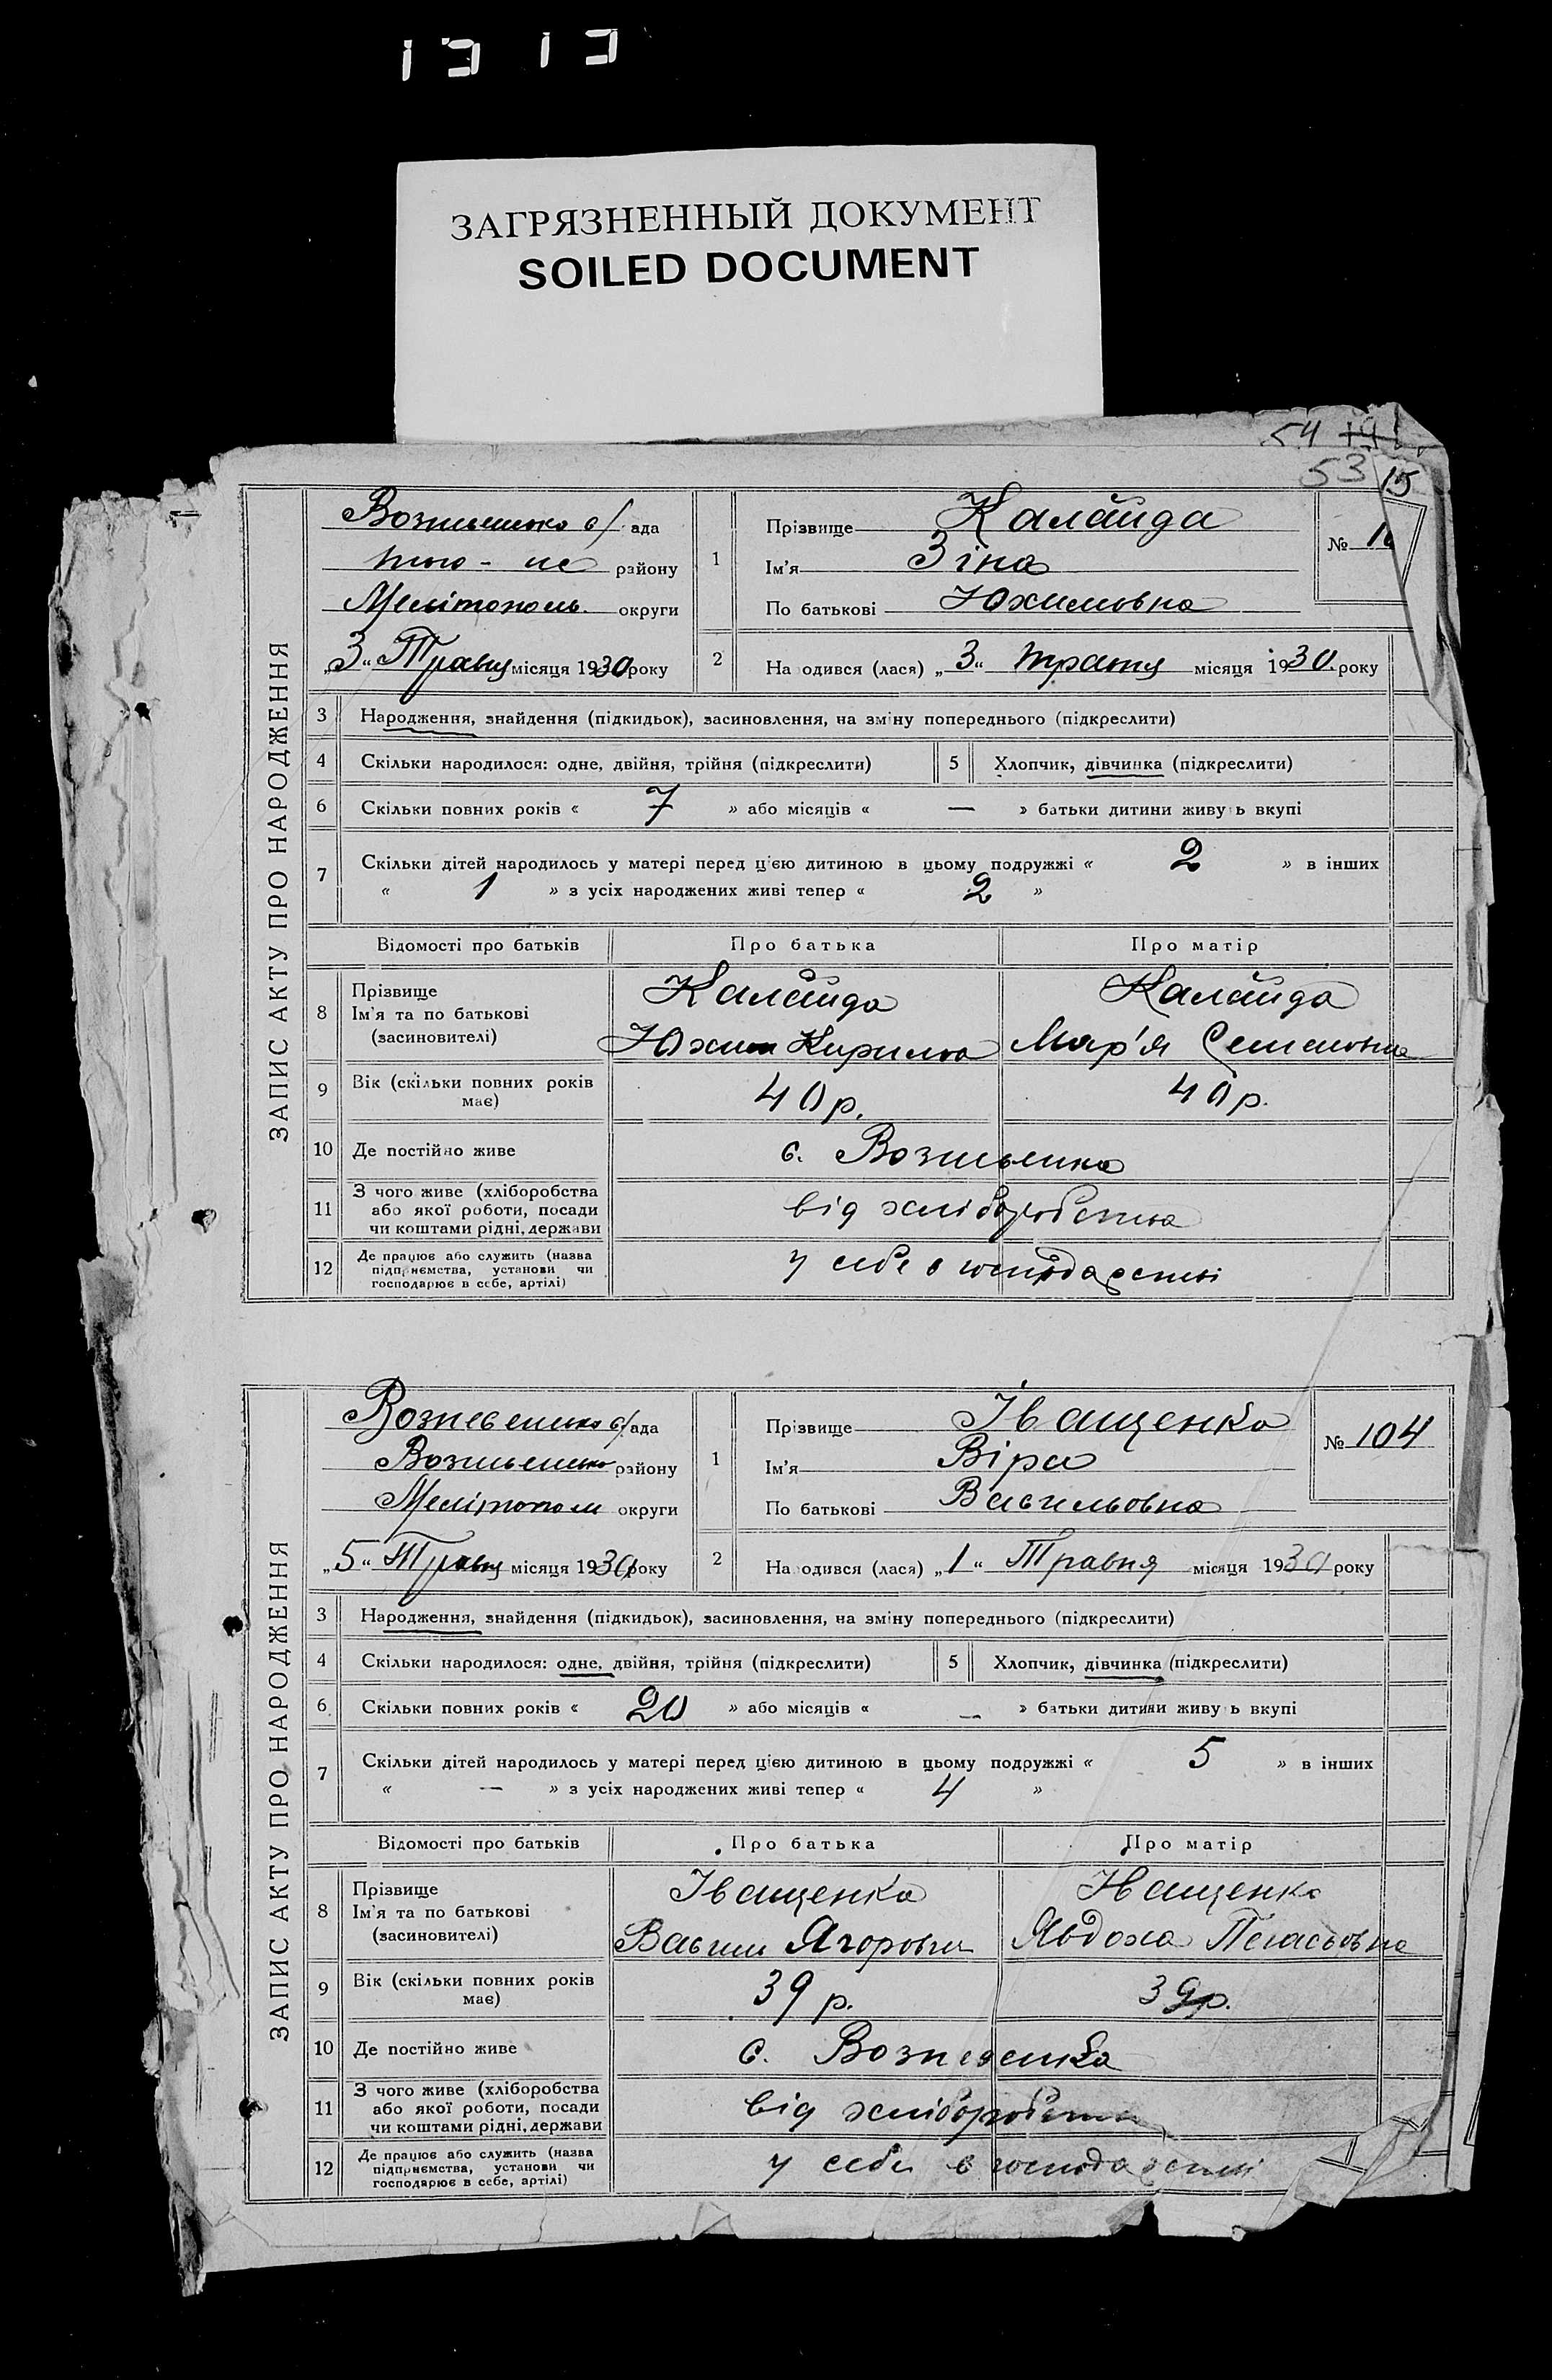 ЗАГРЯЗНЕННЫЙ ДОКУМЕНТ
SOILED DOCUMENT
54
53 15
ЗАПИС АКТУ ПРО НАРОДЖЕННЯ
ада
району
Мелітополь округи
„3“ Травня місяця 1930 року
1
Прізвище Калайда
Ім'я Зіна
По батькові Юхимовна
№
2
На одився (лася) „3“ травня місяця 1930 року
3 Народження, знайдення (підкидьок), засиновлення, на зміну попереднього (підкреслити)
4 Скільки народилося: одне, двійня, трійня (підкреслити) 5 Хлопчик, дівчинка (підкреслити)
6 Скільки повних років « 7 » або місяців « — » батьки дитини живу ь вкупі
7 Скільки дітей народилось у матері перед цією дитиною в цьому подружжі « 2 » в інших
« 1 » з усіх народжених живі тепер « 2 »
Відомості про батьків Про батька Про матір
8 Прізвище Калайда Калайда
Ім'я та по батькові
(засновителі) Юхим Мар'я Семеновна
9 Вік (скільки повних років має) 40 р. 40 р.
10 Де постійно живе с.
11 З чого живе (хліборобства або якої роботи, посади чи коштами рідні, держави від хліборобства
12 Де працює або служить (назва підприємства, установи чи господарює в себе, артілі) у себе в господарстві
ЗАПИС АКТУ ПРО НАРОДЖЕННЯ
ада
району
округи
„5“ Травня місяця 1930 року
1
Прізвище Іващенко
Ім'я Віра
По батькові Васильовна
№ 104
2
На одився (лася) „1“ Травня місяця 1930 року
3 Народження, знайдення (підкидьок), засиновлення, на зміну попереднього (підкреслити)
4 Скільки народилося: одне, двійня, трійня (підкреслити) 5 Хлопчик, дівчинка (підкреслити)
6 Скільки повних років « 20 » або місяців « — » батьки дитини живу ь вкупі
7 Скільки дітей народилось у матері перед цією дитиною в цьому подружжі « 5 » в інших
« — » з усіх народжених живі тепер « 4 »
Відомості про батьків Про батька Про матір
8 Прізвище Іващенко Іващенко
Ім'я та по батькові
(засиновителі) Явдоха
9 Вік (скільки повних років має) 39 р. 39 р.
10 Де постійно живе с. Вознесенка
11 З чого живе (хліборобства або якої роботи, посади чи коштами рідні, держави від хліборобства
12 Де працює або служить (назва підприємства, установи чи господарює в себе, артілі) у себе в господарстві